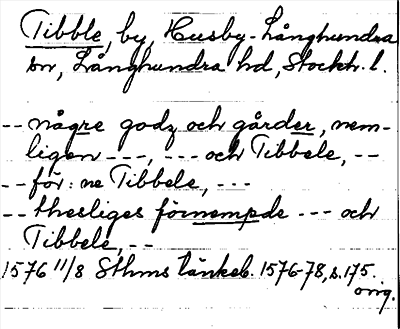 Tibble, by, Husby-Långhundra
sn, Långhundra hd, Stockh. l.
-- någre godz och gårder, nem-
ligen ---, --- och Tibbele, --
-- för:ne Tibbele, ---
-- thesliges förnempde --- och
Tibbele, --
1576 11/8 Sthms tänkeb. 1576-78, s. 175.
orig.